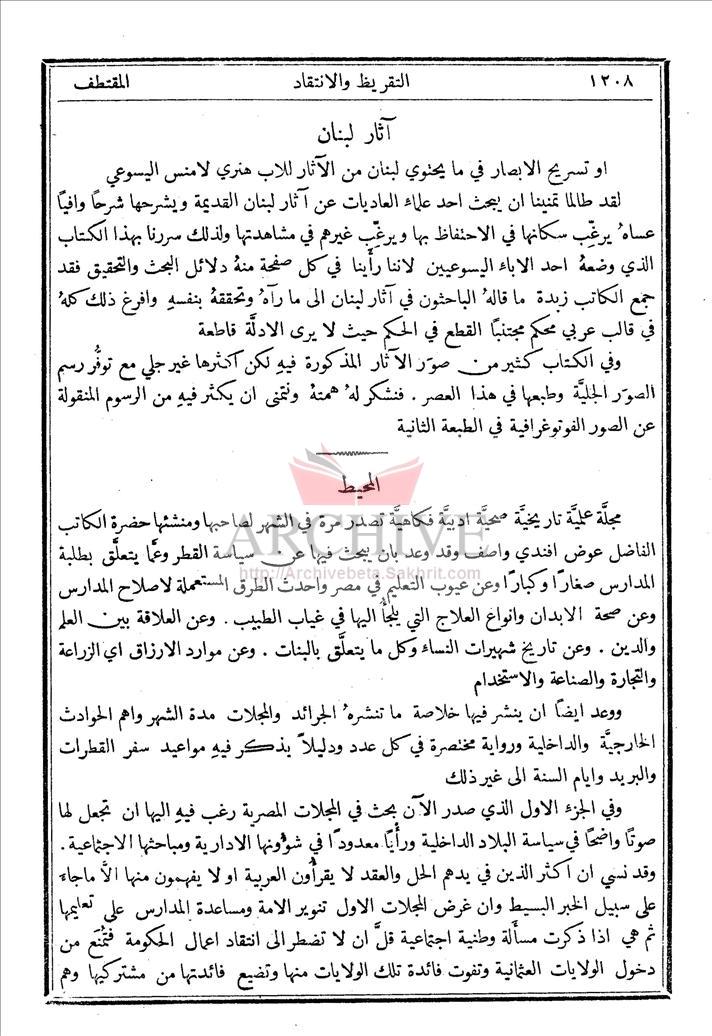 ١٢٠٨ التقريظ والانتقاد المقتطف
آثار لبنان
او تسريح الابصار في ما يحتوي لبنان من الآثار للاب هنري لامنس اليسوعي
لقد طالما تمنينا ان يبحث احد علماء العاديات عن آثار لبنان القديمة ويشرحها شرحًا وافيًا
عساهُ يرغّب سكانها في الاحتفاظ بها ويرغّب غيرهم في مشاهدتها ولذلك سررنا بهذا الكتاب
الذي وضعهُ احد الاباء اليسوعيين لاننا رأينا في كل صفحة منهُ دلائل البحث والتحقيق فقد
جمع الكاتب زبدة ما قالهُ الباحثون في آثار لبنان الى ما رآهُ وتحققهُ بنفسهِ وافرغ ذلك كلهُ
في قالب عربي محكم مجتنبًا القطع في الحكم حيث لا يرى الادلَّة قاطعة
وفي الكتاب كثير من صوَر الآثار المذكورة فيهِ لكن اكثرها غير جلي مع توفُّر رسم
الصوَر الجليَّة وطبعها في هذا العصر . فنشكر لهُ همتهُ ونتمنى ان يكثر فيهِ من الرسوم المنقولة
عن الصور الفوتوغرافية في الطبعة الثانية
المحيط
مجلَّة علميَّة تاريخيَّة صحيَّة ادبيَّة فكاهيَّة تصدر مرة في الشهر لصاحبها ومنشئها حضرة الكاتب
ARCHIVE
الفاضل عوض افندي واصف وقد وعد بان يبحث فيها عن سياسة القطر وعمَّا يتعلَّق بطلبة
http://Archivebeta.Sakhrit.com
المدارس صغارًا وكبارًا وعن عيوب التعليم في مصر واحدث الطرق المستعملة لاصلاح المدارس
وعن صحة الابدان وانواع العلاج التي يُلجأُ اليها في غياب الطبيب . وعن العلاقة بين العلم
والدين . وعن تاريخ شهيرات النساء وكل ما يتعلَّق بالبنات . وعن موارد الارزاق اي الزراعة
والتجارة والصناعة والاستخدام
ووعد ايضًا ان ينشر فيها خلاصة ما تنشرهُ الجرائد والمجلات مدة الشهر واهم الحوادث
الخارجيَّة والداخلية ورواية مختصرة في كل عدد ودليلاً يذكر فيهِ مواعيد سفر القطرات
والبريد وايام السنة الى غير ذلك
وفي الجزء الاول الذي صدر الآن بحث في المجلات المصرية رغب فيهِ اليها ان تجعل لها
صوتًا واضحًا في سياسة البلاد الداخلية ورأيًا معدودًا في شؤونها الادارية ومباحثها الاجتماعية .
وقد نسي ان اكثر الذين في يدهم الحل والعقد لا يقرأون العربية او لا يفهمون منها الاَّ ما جاء
على سبيل الخبر البسيط وان غرض المجلات الاول تنوير الامة ومساعدة المدارس على تعليمها
ثم هي اذا ذكرت مسألة وطنية اجتماعية قلَّ ان لا تضطر الى انتقاد اعمال الحكومة فتُمنَع من
دخول الولايات العثمانية وتفوت فائدة تلك الولايات منها وتضيع فائدتها من مشتركيها وهم